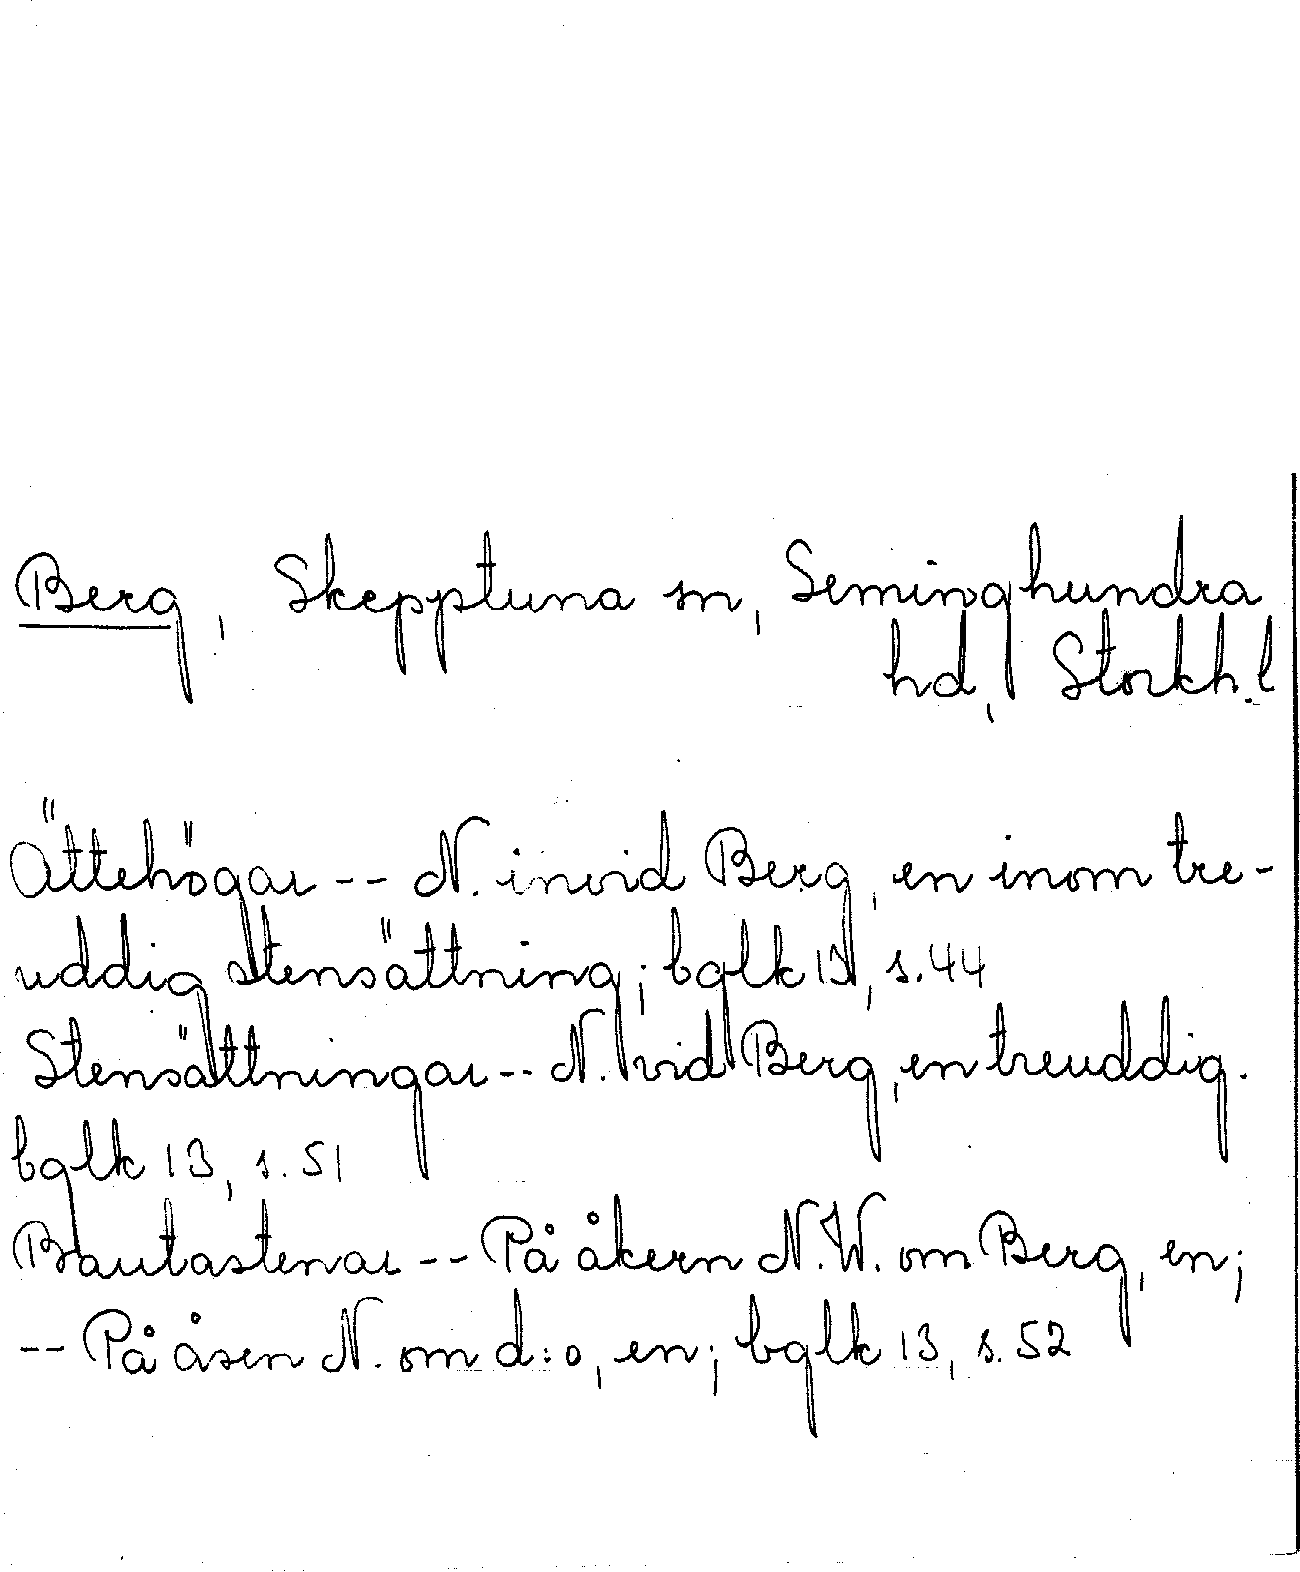 Berg, Skepptuna sn, Seminghundra
hd, Stockh. l
Ättehögar -- N. invid Berg, en inom tre-
uddig stensättning; bglk 13, s. 44
Stensättningar -- N. vid Berg, en treuddig.
bglk 13, s. 51
Bautastenar -- På åkern N.W. om Berg, en;
-- På åsen N. om d:o, en; bglk 13, s. 52